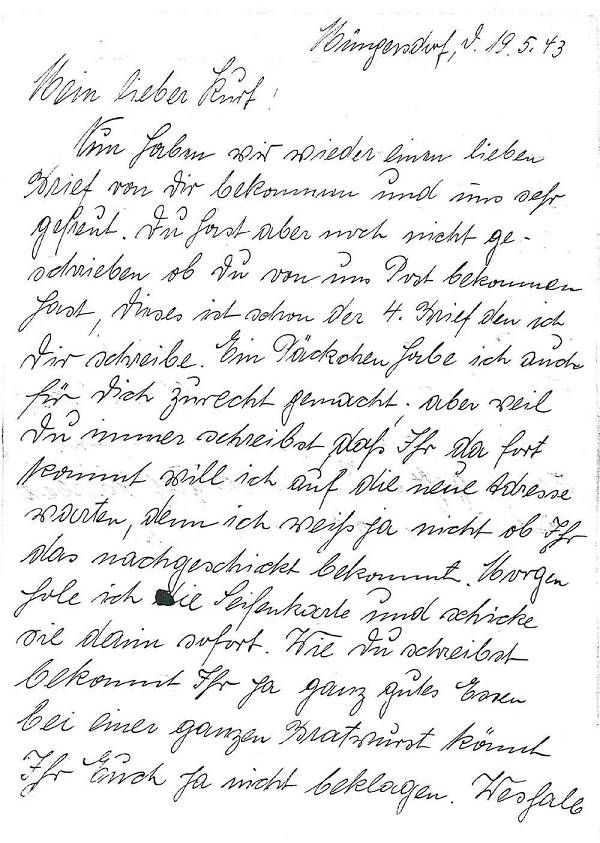 Müngersdorf, d. 19.5.43
Mein lieber Kurt!
Nun haben wir wieder einen lieben
Brief von Dir bekommen und uns sehr
gefreut. Du hast aber noch nicht ge-
schrieben ob Du von uns Post bekommen
hast, dieses ist schon der 4. Brief den ich
Dir schreibe. Ein Päckchen habe ich auch
für Dich zurecht gemacht, aber weil
Du immer schreibst daß Ihr da fort
kommt will ich auf die neue Adresse
warten, denn ich weiß ja nicht ob Ihr
das nachgeschickt bekommt. Morgen
hole ich die Seifenkarte und schicke
sie dann sofort. Wie Du schreibst
bekommt Ihr ja ganz gutes Essen
bei einer ganzen Bratwurst könnt
Ihr Euch ja nicht beklagen. Weshalb